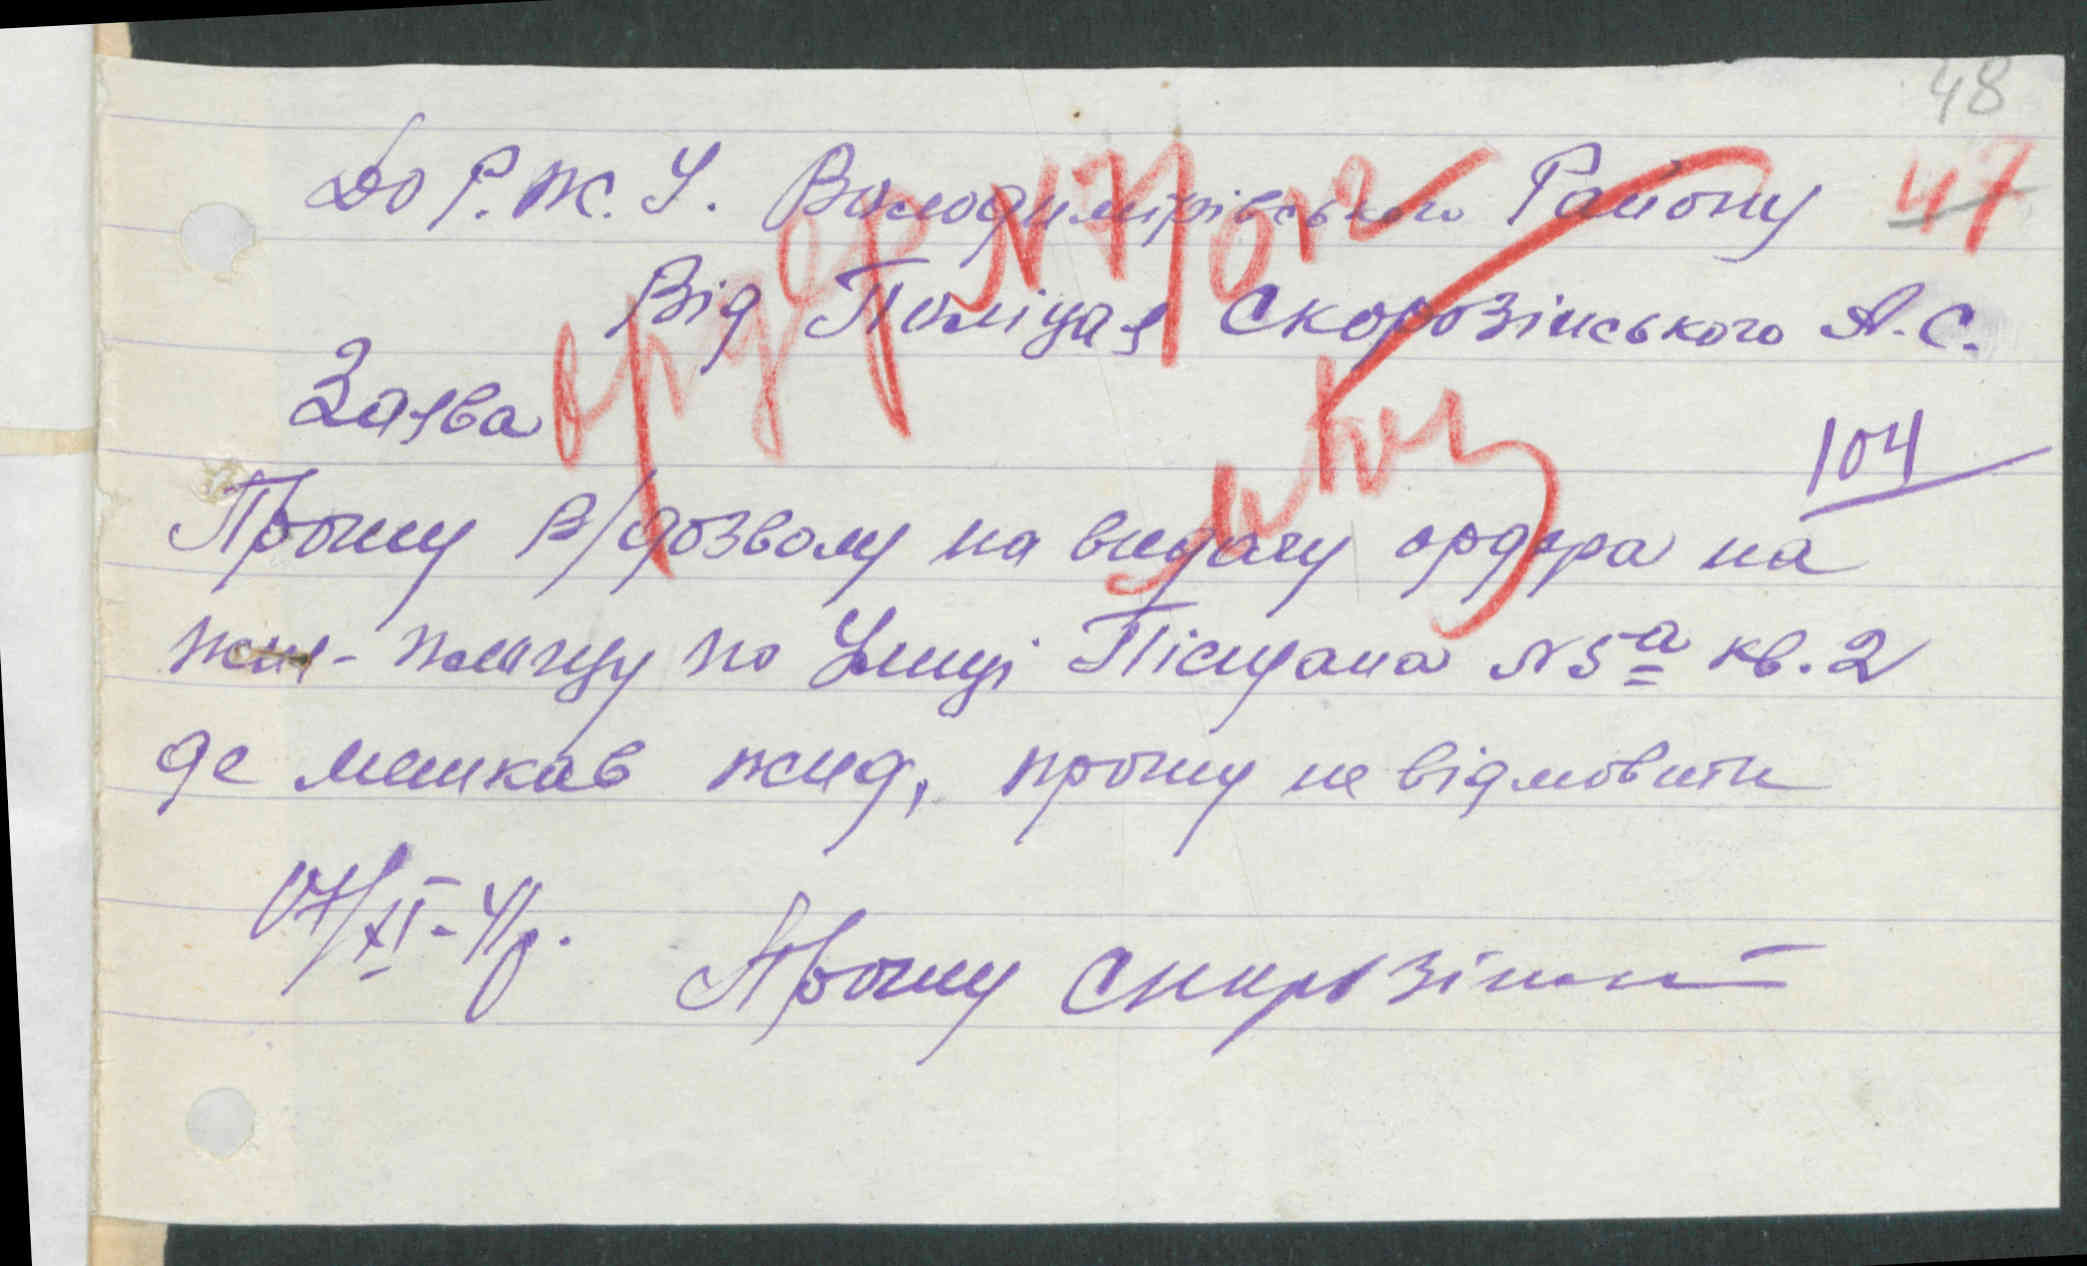 48
До Р.Ж.У. Володимірівського Району
47
Від Поліцая Скорозінського А.С.
Заява
ордер N 71
104
Прошу В/дозволу на видачу ордера на
жил-площу по Улиці Пісцана N5а кв. 2
де мешкав жид, прошу не відмовити
07/XI-41р.
Прошу Скорозінський